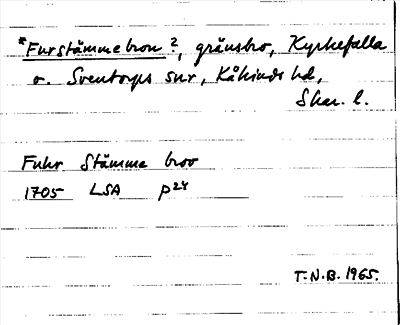 *Furstämmebron?, gränsbro, Kyrkefalla
o. Sventorps snr, Kåkinds hd,
Skar. l.
Fuhr Stämme broo
1705 LSA p24
T.N.B. 1965.